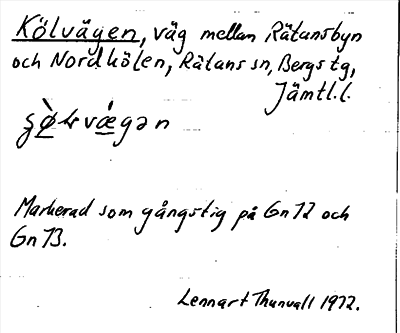 Kölvägen, väg mellan Rätansbyn
och Nordhölen, Rätans sn, Bergs tg,
Jämtl.l.
Markerad som gångstig på Gn 72 och
Gn 73.
Lennart Thunvall 1972.